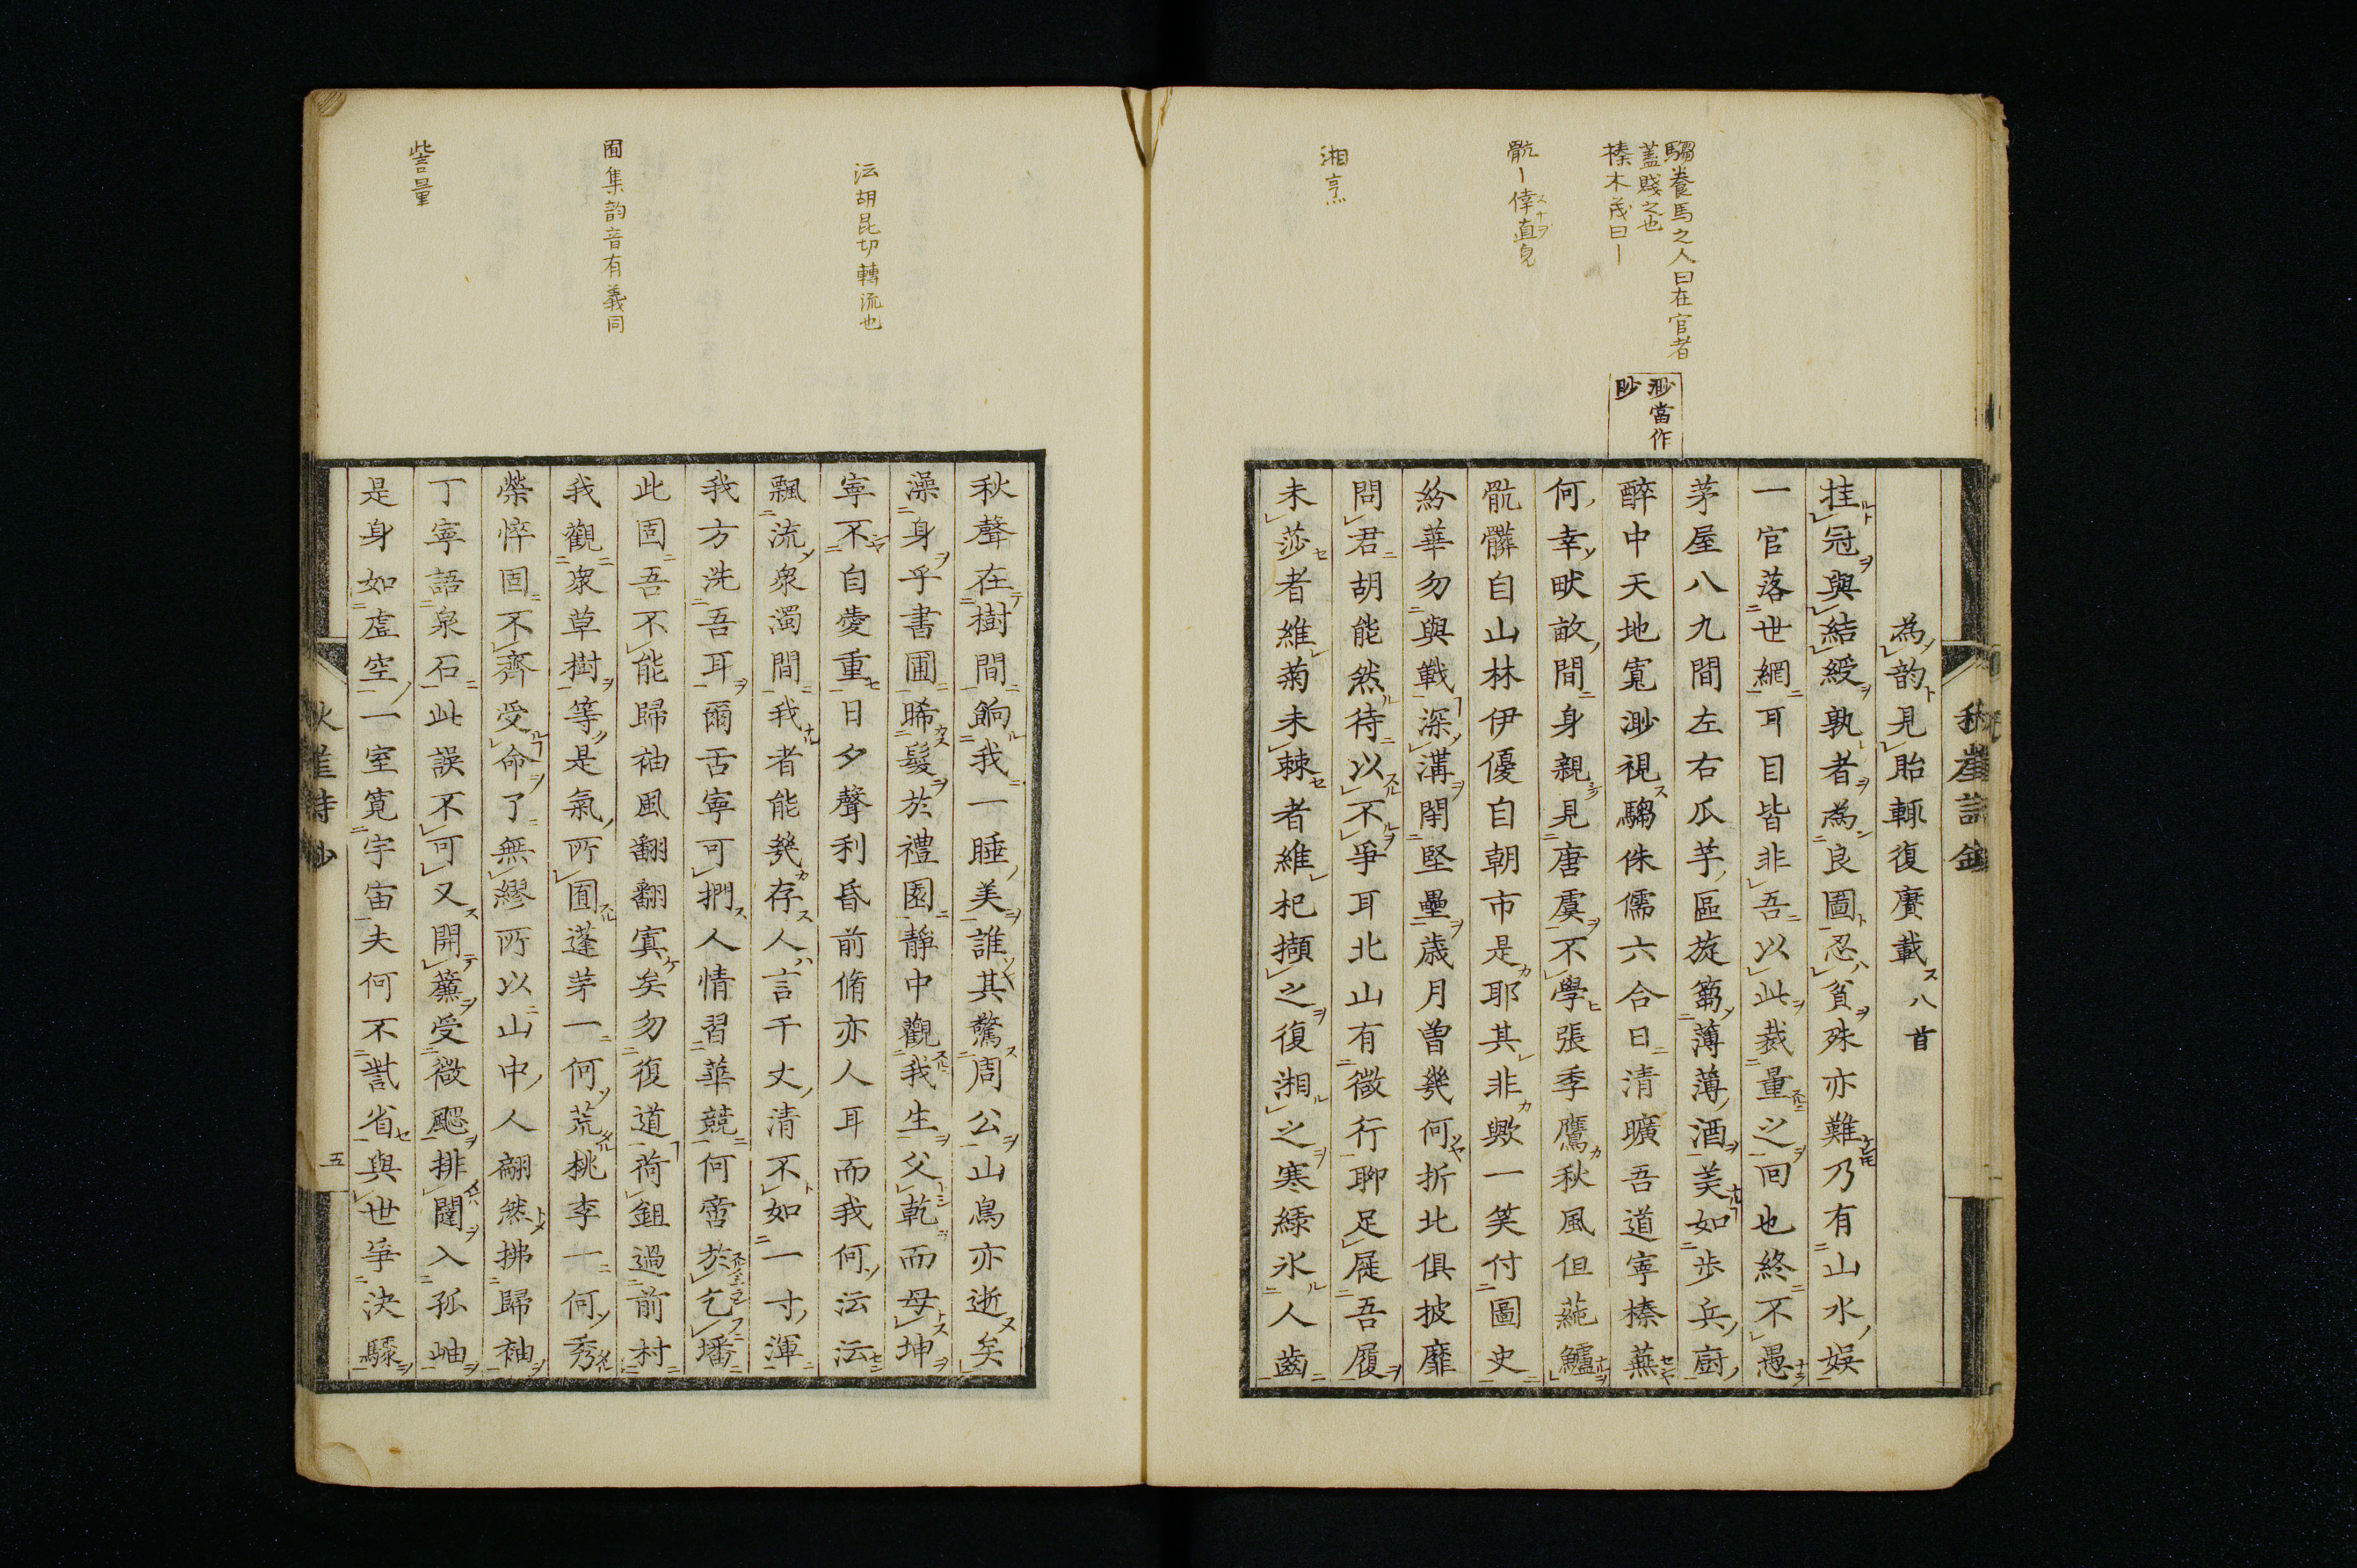 騶養馬之人曰在官者
蓋賤之也
榛木茂曰―
骯―倖直皃
湘烹
渺當作
眇
為韵見貽輒復賡載八首
挂冠與結綬孰者為良圖忍貧殊亦難乃有山水娯
一官落世網耳目皆非吾以此裁量之回也終不愚
茅屋八九間左右瓜芋區旋篘薄薄酒美如歩兵廚
醉中天地寛渺視騶侏儒六合日清曠吾道寧榛蕪
何幸畎畝間身親見唐虞不學張季鷹秋風但蒓鱸
骯髒自山林伊優自朝市是耶其非歟一笑付圖史
紛華勿與戰深溝閉堅壘歳月曽幾何折北俱披靡
問君胡能然待以不爭耳北山有微行聊足屣吾履
未莎者維菊未棘者維杞擷之復湘之寒緑氷人齒
沄胡昆切轉流也
囿集韵音有義同
訾量
秋聲在樹間餉我一睡美誰其驚周公山鳥亦逝矣
澡身乎書圃晞髮於禮園靜中觀我生父乾而母坤
寧不自愛重日夕聲利昏前脩亦人耳而我何沄沄
飄流衆濁間我者能幾存人言千丈清不如一寸渾
我方洗吾耳爾舌寧可捫人情習華競何啻於乞墦
此固吾不能歸袖風翻翻寘矣勿復道荷鉏過前村
我觀衆草樹等是氣所囿蓬茅一何荒桃李一何秀
榮悴固不齊受命了無繆所以山中人翩然拂歸袖
丁寧語泉石此誤不可又開簾受微颸排闥入孤岫
是身如虛空一室寛宇宙夫何不訾省與世爭決驟
五